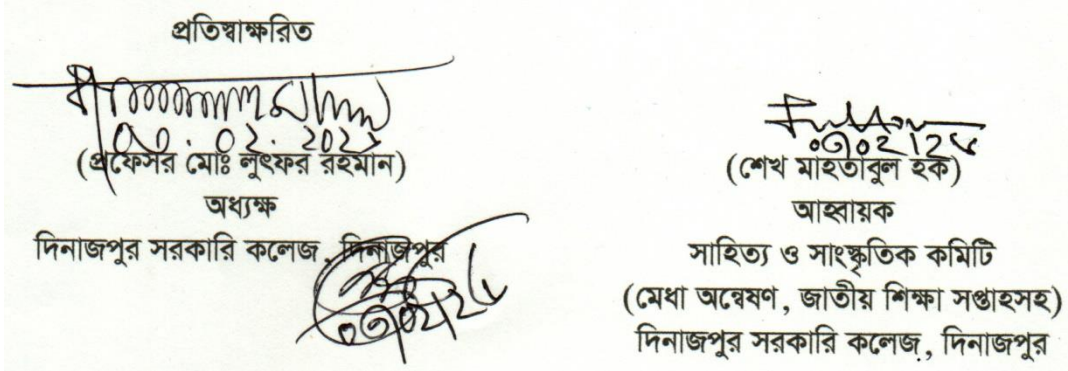 প্রতিস্বাক্ষরিত
(প্রফেসর মোঃ লুৎফর রহমান)
অধ্যক্ষ
দিনাজপুর সরকারি কলেজ, দিনাজপুর
(শেখ মাহতাবুল হক)
আহ্বায়ক
সাহিত্য ও সাংস্কৃতিক কমিটি
(মেধা অন্বেষণ, জাতীয় শিক্ষা সপ্তাহসহ)
দিনাজপুর সরকারি কলেজ, দিনাজপুর